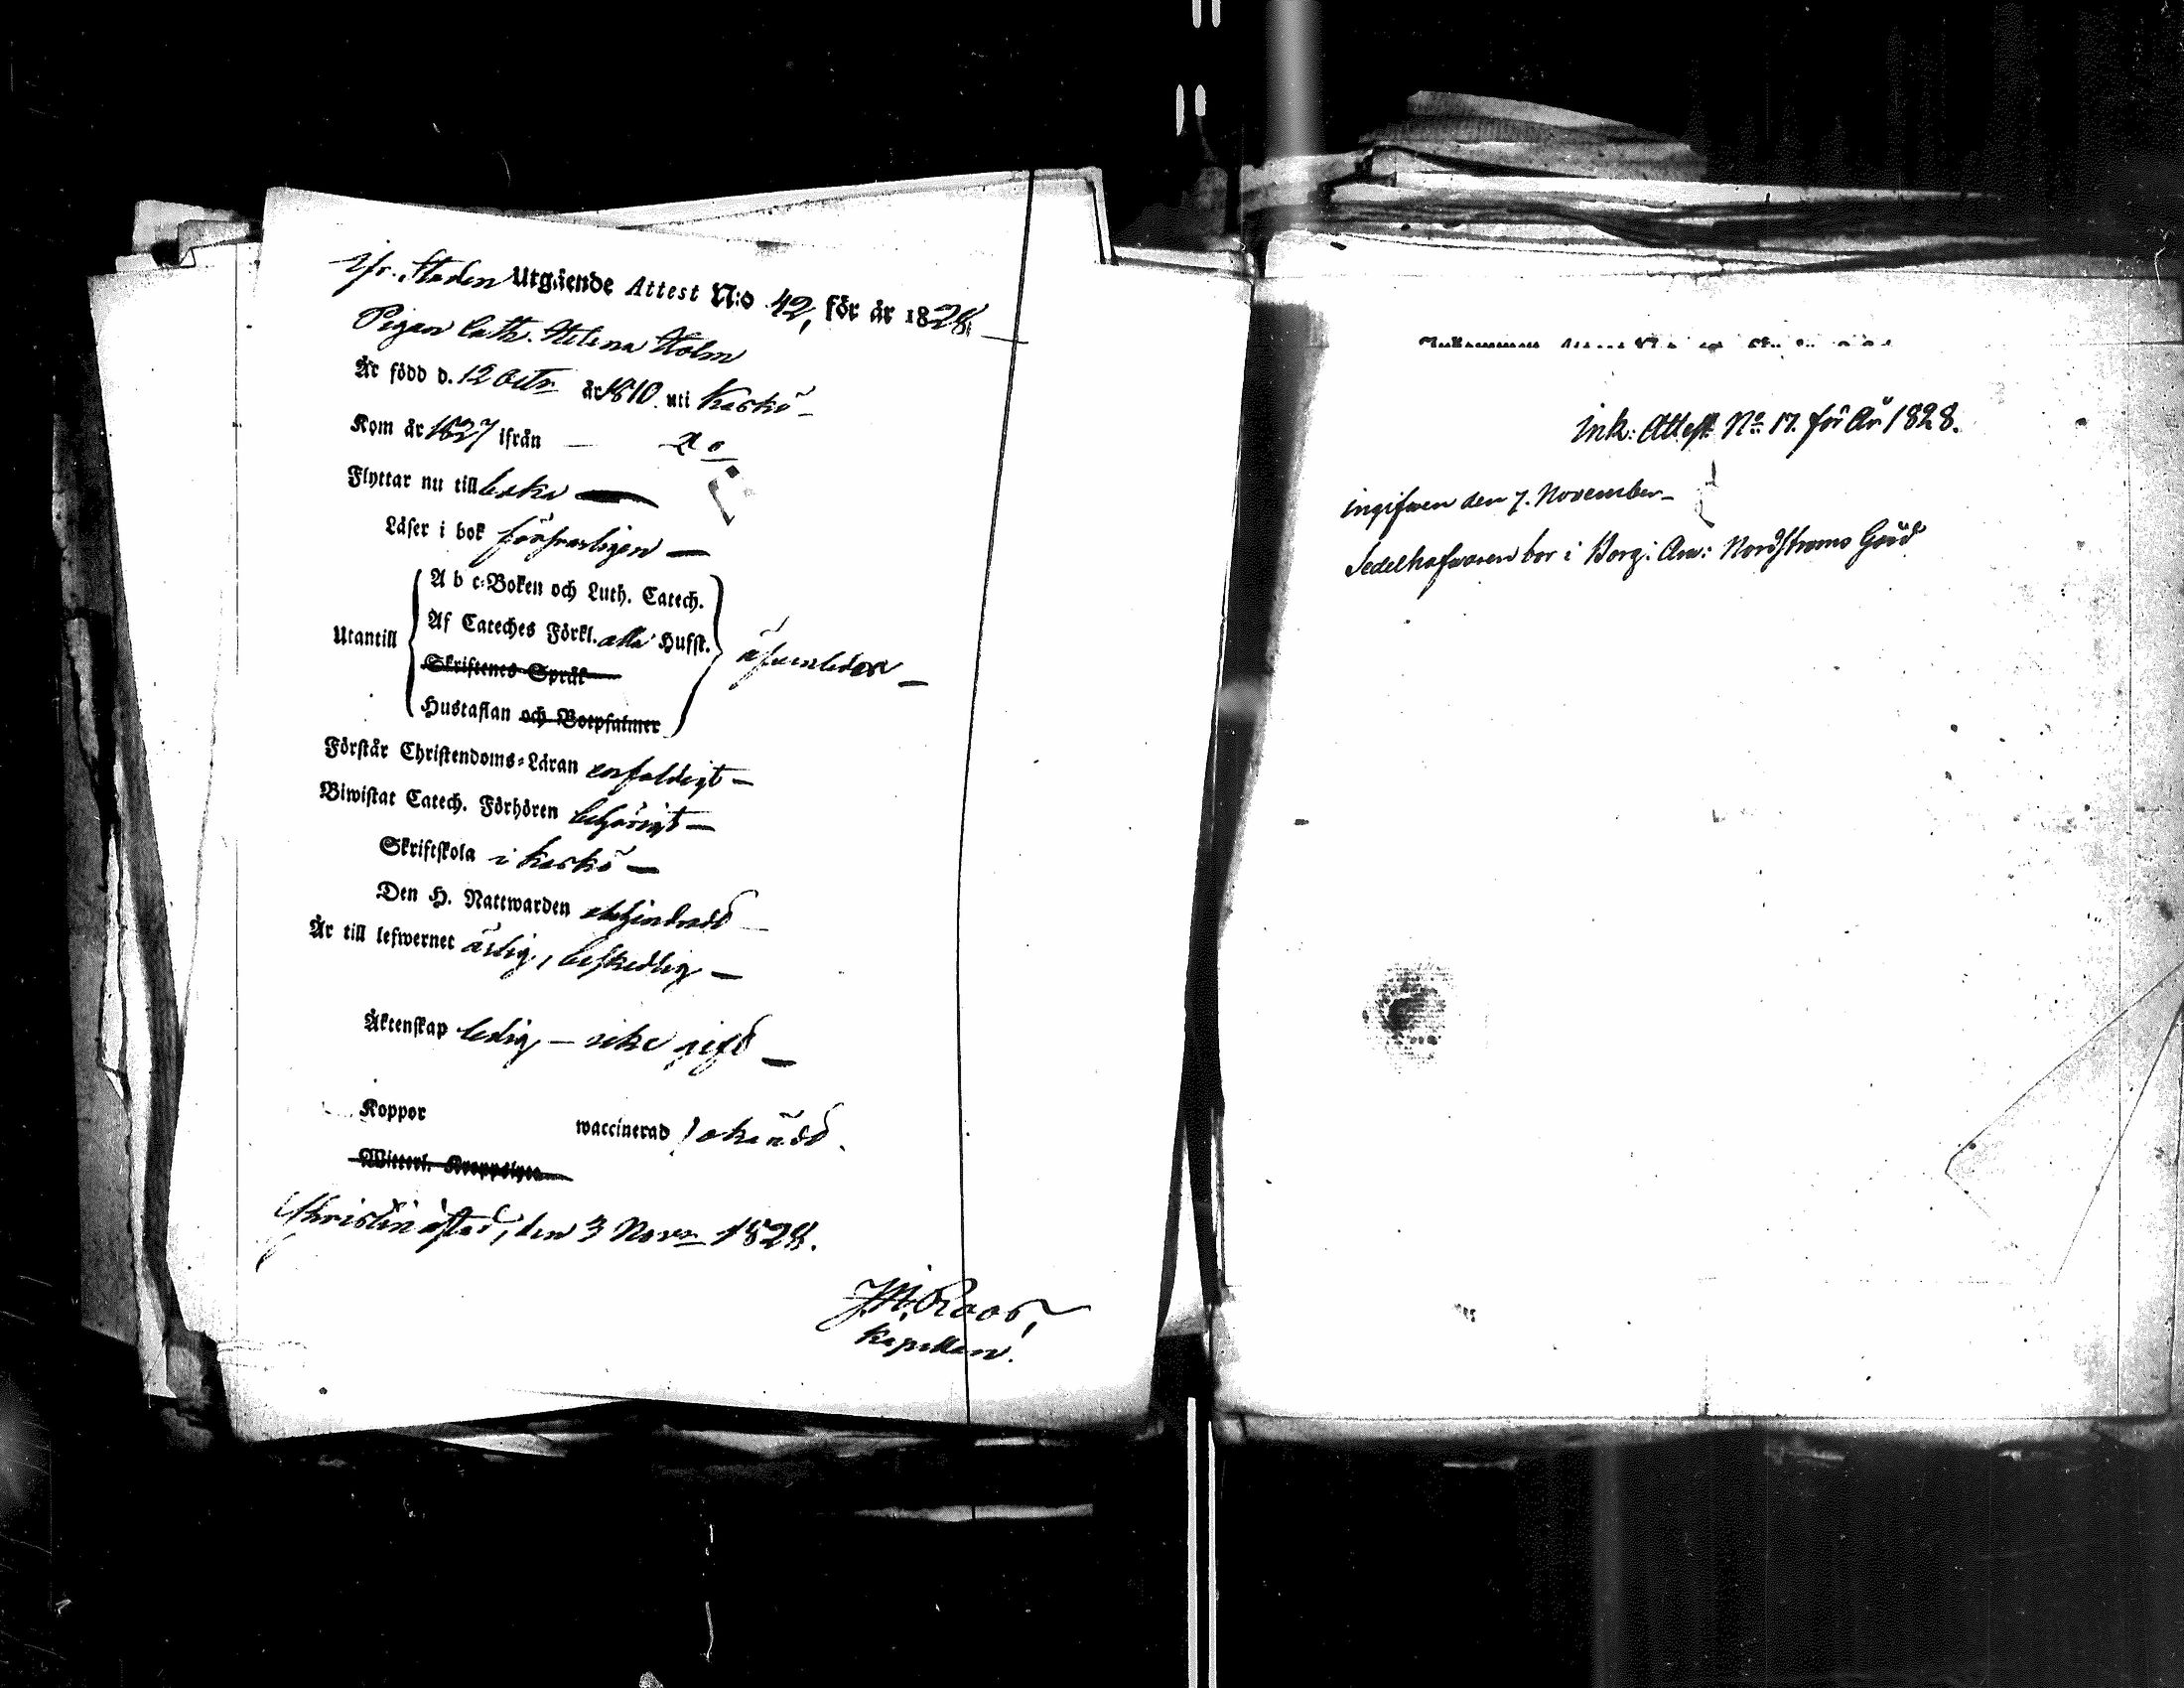 ifr. Staden Utgående Attest N:o 42, för år 1828.
Pigan Cath. Helena Holm
Är född d. 12 Octr år 1810 uti Kaskö
Kom år 1827 ifrån —
Flyttar nu till
Läser i bok försvarligen —
Utantill
A b c-Boken och Luth. Catech.
Af Cateches Förkl. alla Hufst.
Skriftenes Språk
Hustaflan och Botpsalmer
äfvenledes —
Förstår Christendoms-Läran enfaldigt —
Biwistat Catech. Förhören behörigt —
Skriftskola i Kaskö —
Den H. Nattwarden obehindrad
Är till lefwernet ärlig, beskedlig —
Äktenskap ledig — icke gifd —
Koppor waccinerad okändt.
Witterl. Kroppslyten
Christinæstad, den 3 Novr 1828.
J.M. Roos,
Kapellan.
Ink: Attest No 17. för År 1828.
ingifwen den 7. November
Sedelhafwaren bor i Borg: And: Nordströms Gård